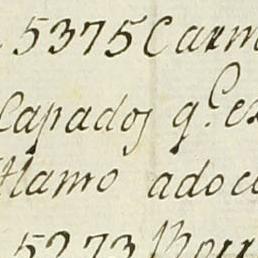 5375 Carn
Capados q.e es
Alamo adoc
5273 Borr